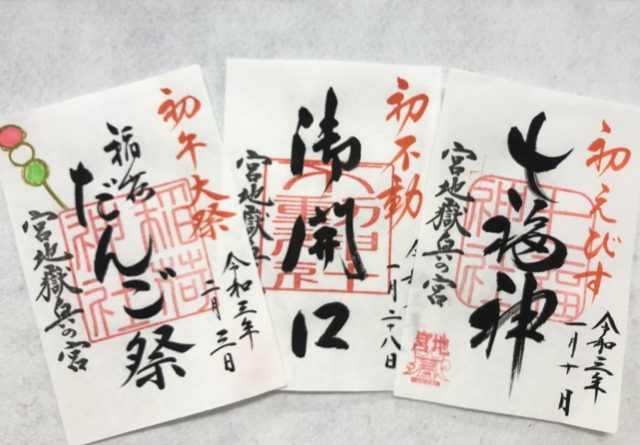 初午大祭
稲荷
だんご祭
稲荷
神社
宮地嶽奥の宮
令和三年
二月三日
初不動
御開口
宮地嶽
一月二十八日
初えびす
七福神
七福
神社
宮地嶽奥の宮
令和三年
一月十日
宮地嶽